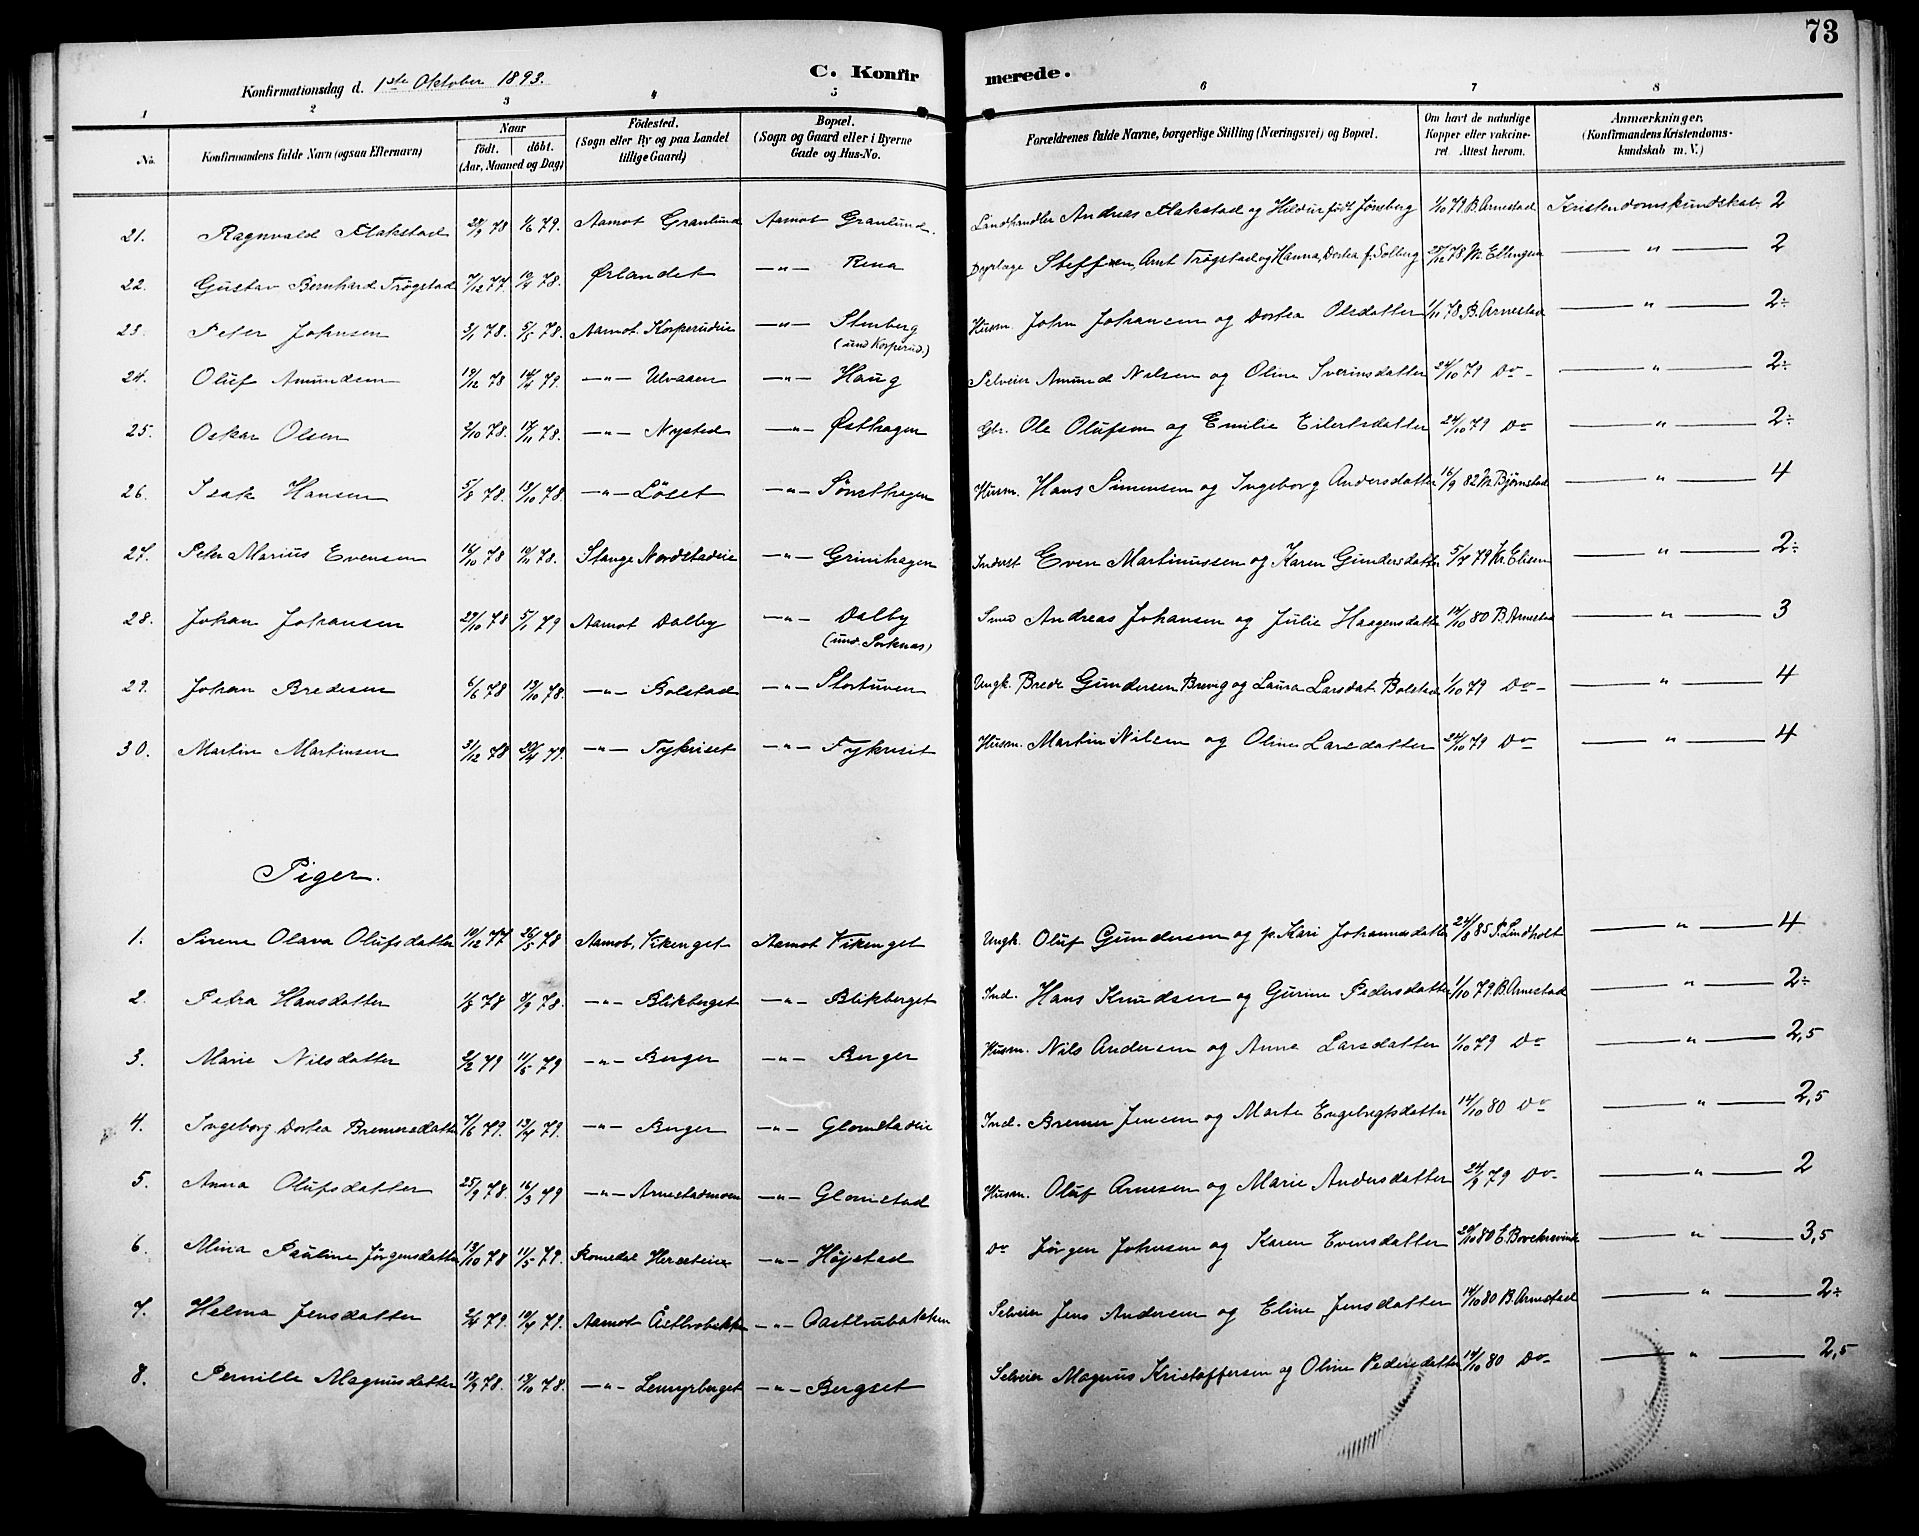 73
C. Konfirmerede.
Konfirmationsdag d. 1ste Oktober 1893.
1 2 3 4 5 6 7 8
No. Konfirmandens fulde Navn (ogsaa Efternavn) Naar födt. döbt. (Aar, Maaned og Dag) Födested. (Sogn eller By og paa Landet tillige Gaard) Bopæl. (Sogn og Gaard eller i Byerne Gade og Hus-No. Forældrenes fulde Navne, borgerlige Stilling (Næringsvei) og Bopæl. Om havt de naturlige Kopper eller vaccineret Attest herom. Anmærkninger. (Konfirmandens Kristendomskundskab m. V.)
21. Ragnvald Flakstad 28/9 78 1/6 79. Aamot Granlund Aamot Granlund. Landhandler Andreas Flakstad og Hilda født Jønsberg 1/10 79 B. Arnestad Kristendomskundskab. 2
22. Gustav Bernhard Trøgstad 7/12 77 78. Ørlandet —"— Rena Steffen Arnt Trøgstad og Hanna Dortea f. Solberg 78 M. Ellingsen —"— 2
23. Peter Johnsen 3/1 78. 5/5 78. Aamot Korperudeie —"— Stenberg (und Korperud.) Husm. John Johansen og Dortea Olsdatter 78 B. Arnestad —"— 2÷
24. Oluf Amundsen 19/12 78 79. —"— Ulvaaen —"— Haug Selveier Amund Nilsen og Oline Sverinsdatter 24/10 79 Do —"— 2÷
25. Oskar Olsen 2/10 78. 17/11 78. —"— Nysted —"— Østhagen Gbr. Ole Olufsen og Emilie Eilertsdatter 24/10 79 Do —"— 2÷
26. Isak Hansen 5/8 78. 13/10 78. —"— Löset —"— Sönsthagen Husm. Hans Simensen og Ingeborg Andersdatter 16/9 82 M. Bjørnstad —"— 4
27. Peter Marius Evensen 16/10 78 10/11 78. Stange Nordstadeie —"— Grinihagen Inderst Even Martinussen og Karen Gundersdatter 5/7 79 Kr. Elisen —"— 2÷
28. Johan Johansen 29/10 78 5/1 79 Aamot Dalby —"— Dalby (und. Sorknæs) Smed Andreas Johansen og Julie Haagensdatter 14/10 80 B. Arnestad —"— 3
29. Johan Bredesen 6/6 78 13/10 78. —"— Bolstad —"— Stortuven Ungk. Brede Gundersen Brevig og Laura Larsdat. Bolstad 1/10 79 Do —"— 4
30. Martin Martinsen 31/12 78 20/4 79. —"— Tykriset —"— Tykrisit Husm. Martin Nilsen og Oline Larsdatter 24/10 79 Do —"— 4
Piger.
1. Sirene Olava Olufsdatter 10/12 77 26/5 78 Aamot, Vikenget Aamot Vikenget Ungk. Oluf Gundersen og p. Kari Johannesdatter 24/8 85 P. Lindholt —"— 4
2. Petra Hansdatter 78 78. —"— Blikberget —"— Blikberget Ind. Hans Knudsen og Gurine Pedersdatter 1/10 79 B. Arnestad —"— 2÷
3. Marie Nilsdatter 2/2 79 11/5 79 —"— Berger —"— Berger Husm. Nils Andersen og Anna Larsdatter 1/10 79 Do —"— 2,5
4. Ingeborg Dortea Bremersdatter 79. 13/7 79. —"— Berger —"— Glomstadeie Ind. Bremer Jensen og Marte Engebregtsdatter 14/10 80 Do —"— 2,5
5. Anna Olufsdatter 25/9 78. 16/3 79 —"— Arnestadmoen —"— Glomstad Husm. Oluf Arnesen og Marie Andersdatter 24/9 79 Do —"— 2
6. Mina Pauline Jørgensdatter 13/10 78 11/5 79. Romedal —"— Højstad Do Jørgen Johnsen og Karen Evensdatter 80 —"— 3,5
7. Helma Jensdatter 2/4 79. 79. Aamot —"— Selveier Jens Andersen og Eline Jensdatter 14/10 80 B. Arnestad —"— 2÷
8. Pernille Magnusdatter 78. 78. —"— Lemyrberget —"— Bergset Selveier Magnus Kristoffersen og Oline Pedersdatter 14/10 80 Do —"— 2,5